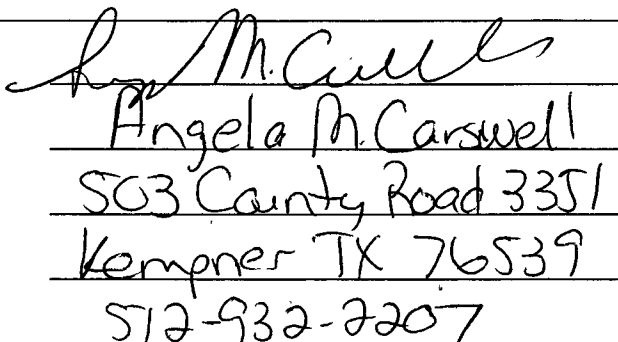 Angela M. Carswell
503 County Road 3351
Kempner TX 76539
512-932-2207